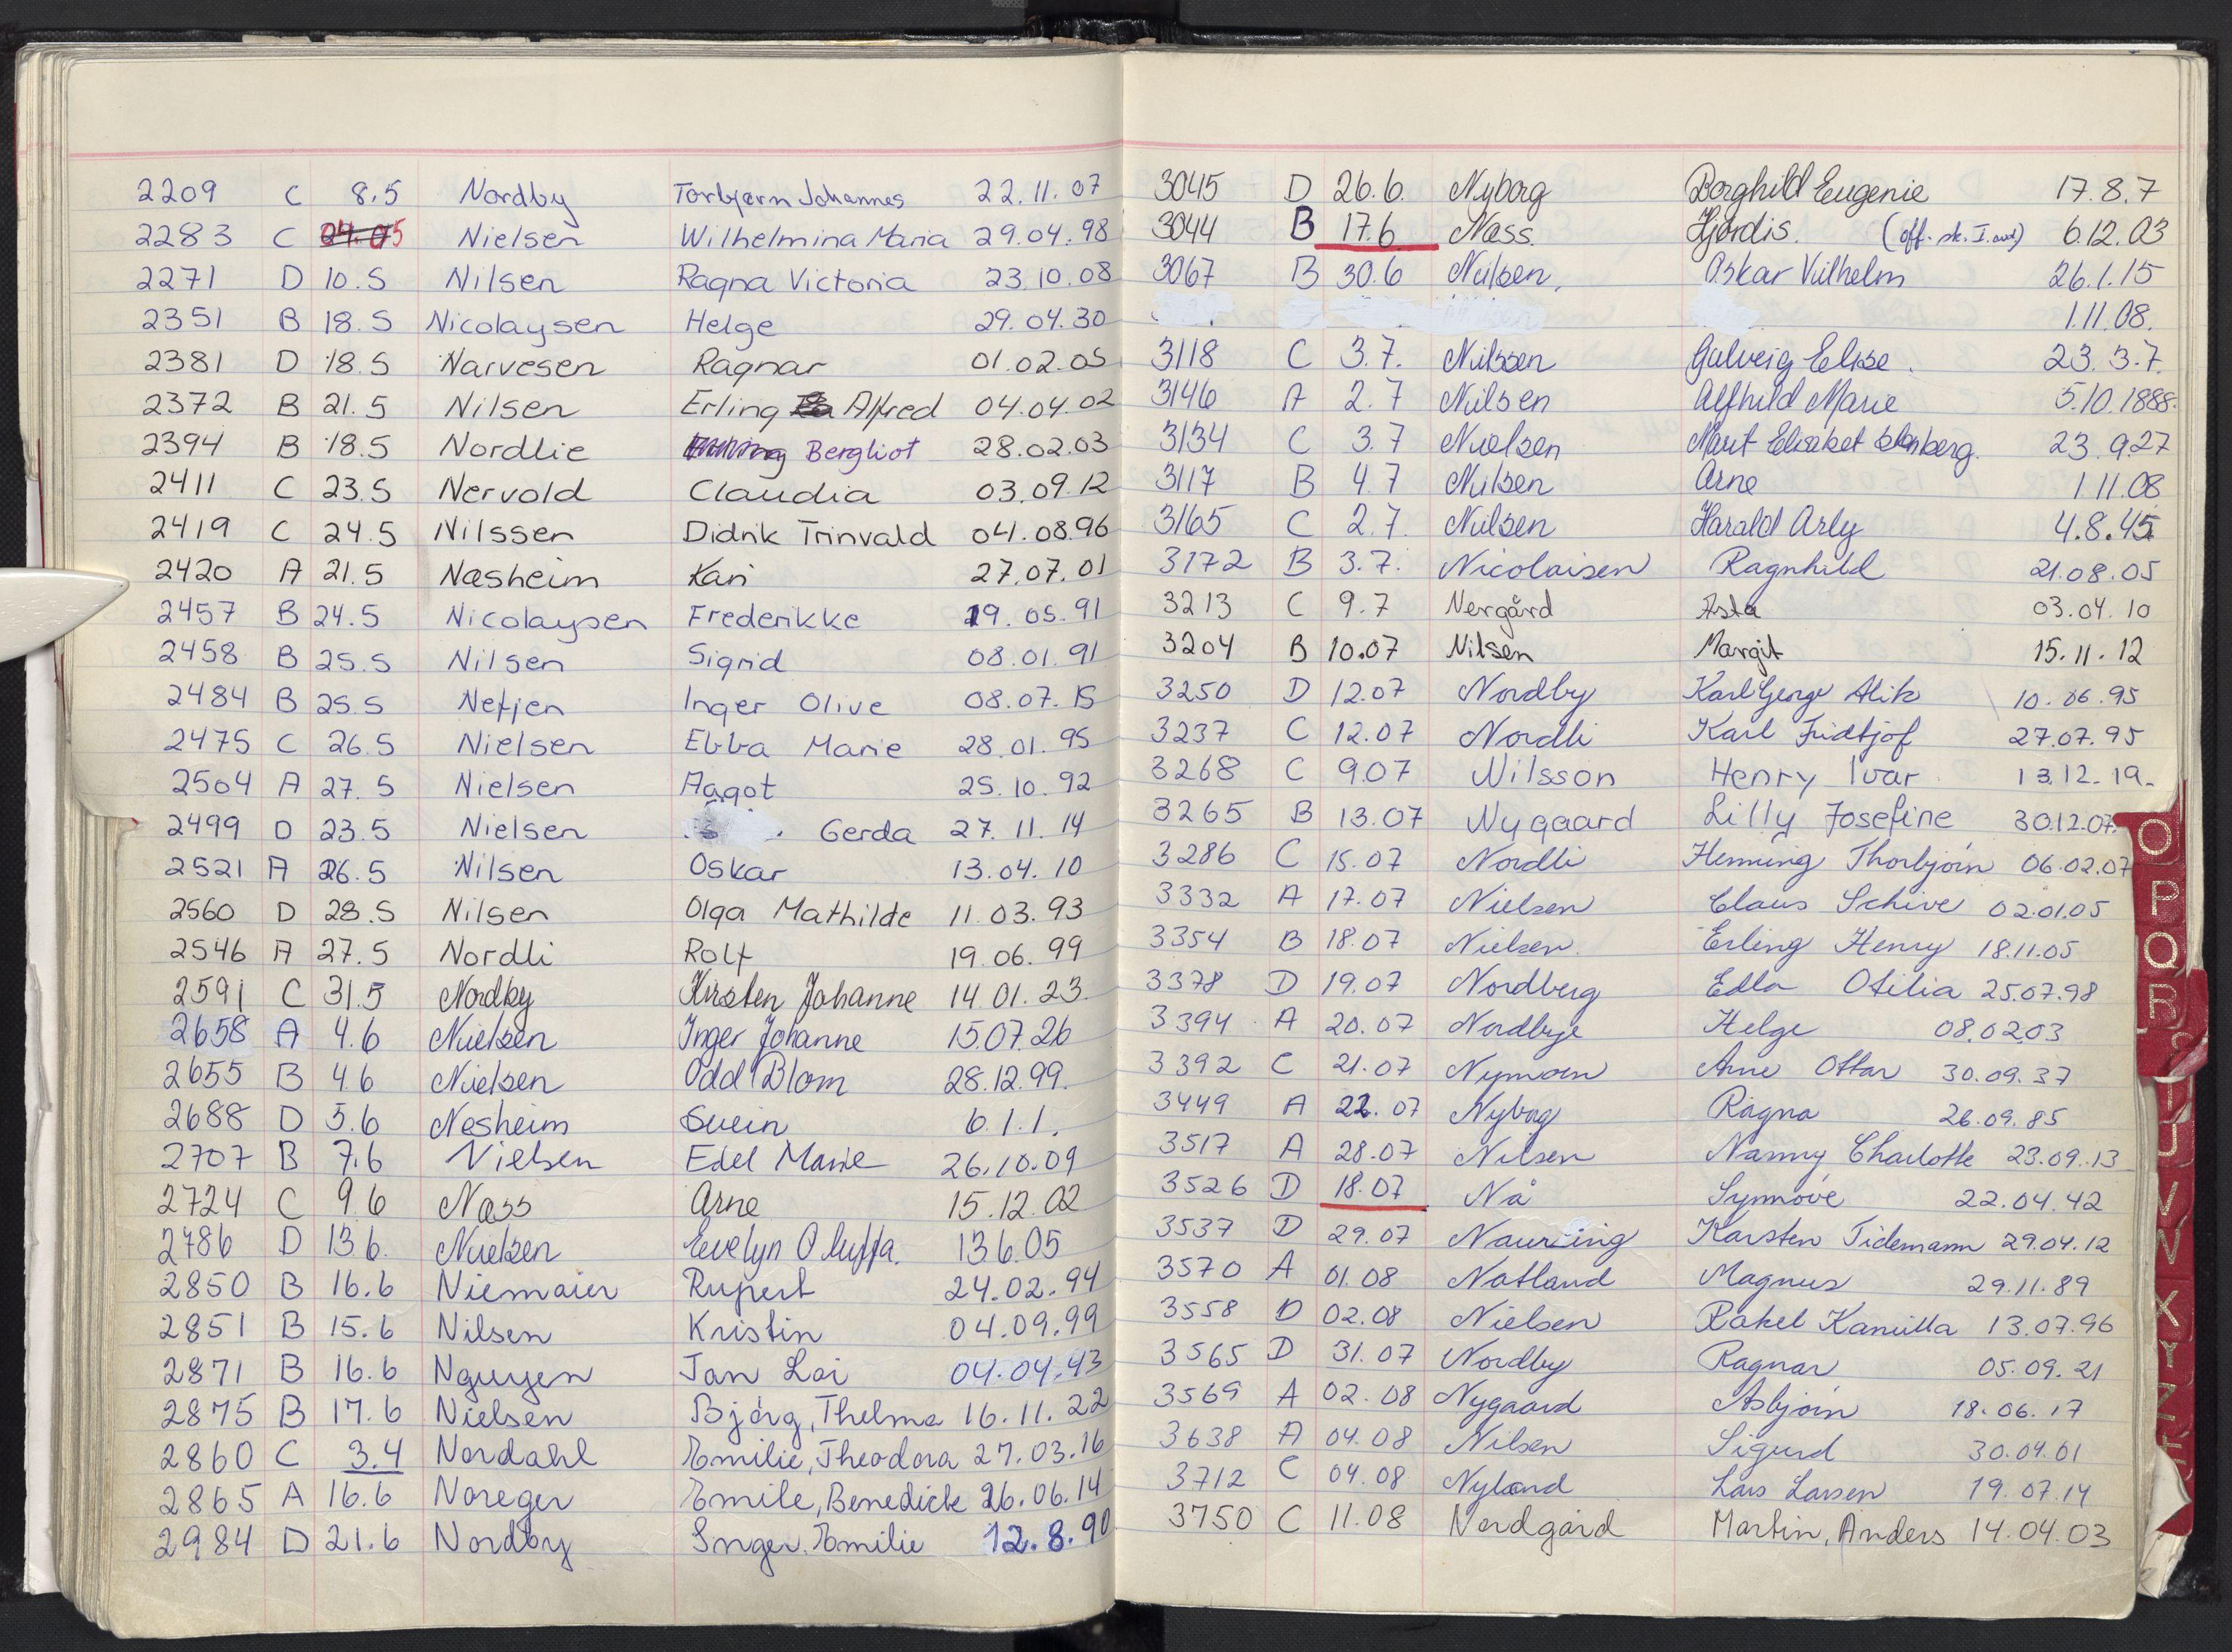 2209 C 8.5 Nordby Torbjørn Johannes 22.11.07
2283 C 24.05 Nielsen Wilhelmina Maria 29.04.98
2271 D 10.5 Nilsen Ragna Victoria 23.10.08
2351 B 18.5 Nicolaysen Helge 29.04.30
2381 D 18.5 Narvesen Ragnar 01.02.05
2372 B 21.5 Nilsen Erling Alfred 04.04.02
2394 B 18.5 Nordlie Bergliot 28.02.03
2411 C 23.5 Nervold Claudia 03.09.12
2419 C 24.5 Nilssen Didrik Trinvald 04.08.96
2420 A 21.5 Næsheim Kari 27.07.01
2457 B 24.5 Nicolaysen Frederikke 19.05.91
2458 B 25.5 Nilsen Sigrid 08.01.91
2484 B 25.5 Netjen Inger Olive 08.07.15
2475 C 26.5 Nielsen Ebba Marie 28.01.95
2504 A 27.5 Nielsen Aagot 25.10.92
2499 D 23.5 Nielsen Gerda 27.11.14
2521 A 26.5 Nilsen Oskar 13.04.10
2560 D 28.5 Nilsen Olga Mathilde 11.03.93
2546 A 27.5 Nordli Rolf 19.06.99
2591 C 31.5 Nordby Kirsten Johanne 14.01.23.
2658 A 4.6 Nielsen Inger Johanne 15.07.26
2655 B 4.6 Nielsen Odd Blom 28.12.99.
2688 D 5.6 Nesheim Svein 6.1.1.
2707 B 7.6 Nielsen Edel Marie 26.10.09
2724 C 9.6 Næss Arne 15.12.02
2786 D 13.6. Nielsen Evelyn Oluffa. 13.6.05
2850 B 16.6 Niemaier Rupert 24.02.94
2851 B 15.6 Nilsen Kristin 04.09.99
2871 B 16.6 Nguyen Jan Loi 04.04.43
2875 B 17.6 Nielsen Bjørg, Thelma 16.11.22
2860 C 3.4 Nordahl Emilie, Theodora 27.03.16
2865 A 16.6 Noreger Emile, Benedicte 26.06.14
2984 D 21.6 Nordby Inger, Emilie 12.8.90
3045 D 26.6. Nyborg Borghild Eugenie 17.8.7
3044 B 17.6 Næss. Hjørdis. (off. sk. I. avd) 6.12.03
3067 B 30.6 Nilsen, Oskar Vilhelm 26.1.15
1.11.08.
3118 C 3.7. Nilssen Gulveig Elise. 23.3.7.
3146 A 2.7 Nilsen Alfhild Marie 5.10.1888.
3134 C 3.7 Nielsen Marit Elisabet 23.9.27
3117 B 4.7 Nilsen Arne 1.11.08
3165 C 2.7. Nilsen Harald Arly 4.8.45
3172 B 3.7. Nicolaisen Ragnhild 21.08.05
3213 C 9.7 Nergård Asta 03.04.10
3204 B 10.07 Nilsen Margit 15.11.12
3250 D 12.07 Nordby Karl Georg Alik 10.06.95
3237 C 12.07 Nordli Karl Fridtjof 27.07.95
3268 C 9.07 Nilsson Henry Ivar 13.12.19.
3265 B 13.07 Nygaard Lilly Josefine 30.12.07.
3286 C 15.07 Nordli Henning Thorbjørn 06.02.07
3332 A 17.07 Nielsen Claus Schive 02.01.05
3354 B 18.07 Nielsen Erling Henry 18.11.05
3378 D 19.07 Nordberg Edla Otilia 25.07.98
3394 A 20.07 Nordbye Helge 08.02.03
3392 C 21.07 Nymoen Arne Ottar 30.09.37
3449 A 22.07 Nyborg Ragna 26.09.85
3517 A 28.07 Nilsen Nanny Charlotte 23.09.13
3526 D 18.07 Nå Synnøve 22.04.42
3537 D 29.07 Nauring Karsten Tidemann 29.04.12
3570 A 01.08 Natland Magnus 29.11.89
3558 D 02.08 Nielsen Rakel Kamilla 13.07.96
3565 D 31.07 Nordby Ragnar 05.09.21
3569 A 02.08 Nygaard Asbjørn 18.06.17
3638 A 04.08 Nilsen Sigurd 30.04.01
3712 C 04.08 Nyland Lars Larsen 19.07.14
3750 C 11.08 Nordgård Martin, Anders 14.04.03
O
P
Q
R
U
V
X
Y
Z